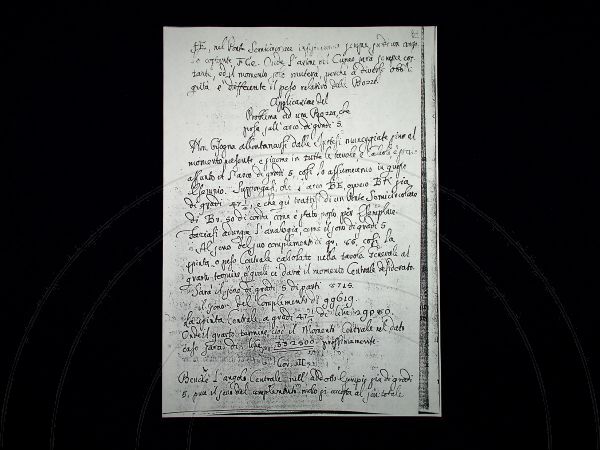 FE, nel Ponte Semicircolare insistono sempre sopra un ango
lo costante, FCe. Onde l'azione del Cuneo sarà sempre cos
tante, ed il momento solo muterà, perchè a diverse obbli
quità è differente il peso relativo delle Bozze.
Applicazione del
Problema ad una Bozza, che
posa sull'arco di gradi 5.
Non bisogna allontanarsi dalle Ipotesi maneggiate fino al
momento presente, e siccome in tutte le tavole
l'arco di gradi 5, così lo assumeremo in questo
Esempio. Suppongasi, che l'arco BE, ovvero BK sia
di gradi 47½, e che qui trattisi di un Ponte Semicircolare
di Br. 50 di corda come è stato posto per Esemplare
Facciasi adunque l'analogia, come il seno di gradi 5
Al seno del suo complemento di gr. 85, così la
spinta, o peso Centrale calcolato nella tavola Generale al
quarto termine, il quale ci darà il momento Centrale desiderato.
Sarà il seno di gradi 5 di parti 8715.
il seno del Complemento di 99619.
La spinta Centrale a gradi 47½ di libre 29080.
Onde il quarto termine cioè il Momento Centrale nel dato
caso sarà di libre 332500 prossimamente.
Cor. III
Benchè l'angolo Centrale nell'addotto Esempio sia di gradi
5, pure il seno del complemento molto si accosta al seno totale